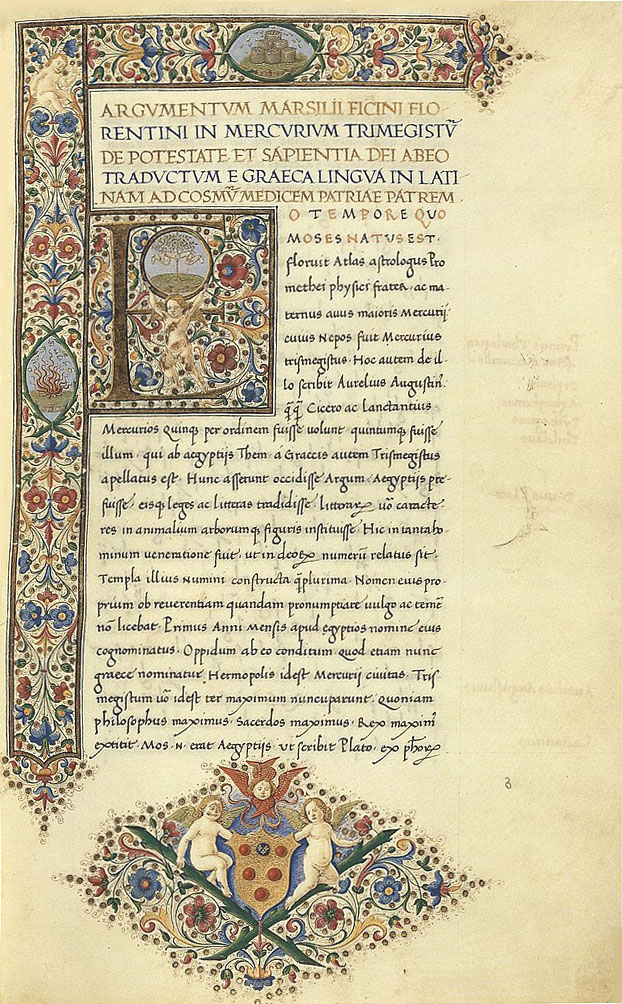 ARGVMENTVM MARSILII FICINI FLO-
RENTINI IN MERCVRIVM TRIMEGISTṼ
DE POTESTATE ET SAPIENTIA DEI AB EO
TRADVCTVM E GRAECA LINGVA IN LATI-
NAM AD COSMṼ MEDICEM PATRIAE PATREM.
E
O TEMPORE QVO
MOSES NATVS EST.
floruit Atlas astrologus Pro
methei physici frater. ac ma-
ternus auus maioris Mercurij
cuius Nepos fuit Mercurius
trismegistus. Hoc autem de il-
lo scribit Aurelius Augustin.
q̃q̃ Cicero ac Lanctantius
Mercurios quinqꝫ per ordinem fuisse uolunt. quintumqꝫ fuisse
illum. qui ab aegyptijs Them. a Graecis autem Trismegistus
apellatus est. Hunc asserunt occidisse Argum. Aegyptijs pre-
fuisse. eisqꝫ leges ac litteras tradidisse. litterarꝝ uõ caracte-
res in animalium arborumqꝫ figuris instituisse. Hic in tanta ho-
minum ueneratione fuit. ut in deorꝝ numerũ relatus sit.
Templa illius numini constructa q̃plurima. Nomen eius pro-
prium ob reuerentiam quandam pronumptiare uulgo ac temẽ
nõ licebat. Primus Anni Mensis apud egyptios nomine eius
cognominatus. Oppidum ab eo conditum quod etiam nunc
graece nominatur Hermopolis idest Mercurij ciuitas. Tris
megistum uõ idest ter maximum nuncuparunt. Quoniam
philosophus maximus. Sacerdos maximus. Rex maxim̃
extitit. Mos .N. erat Aegyptijs. ut scribit Plato. ex ph̃orꝝ
3